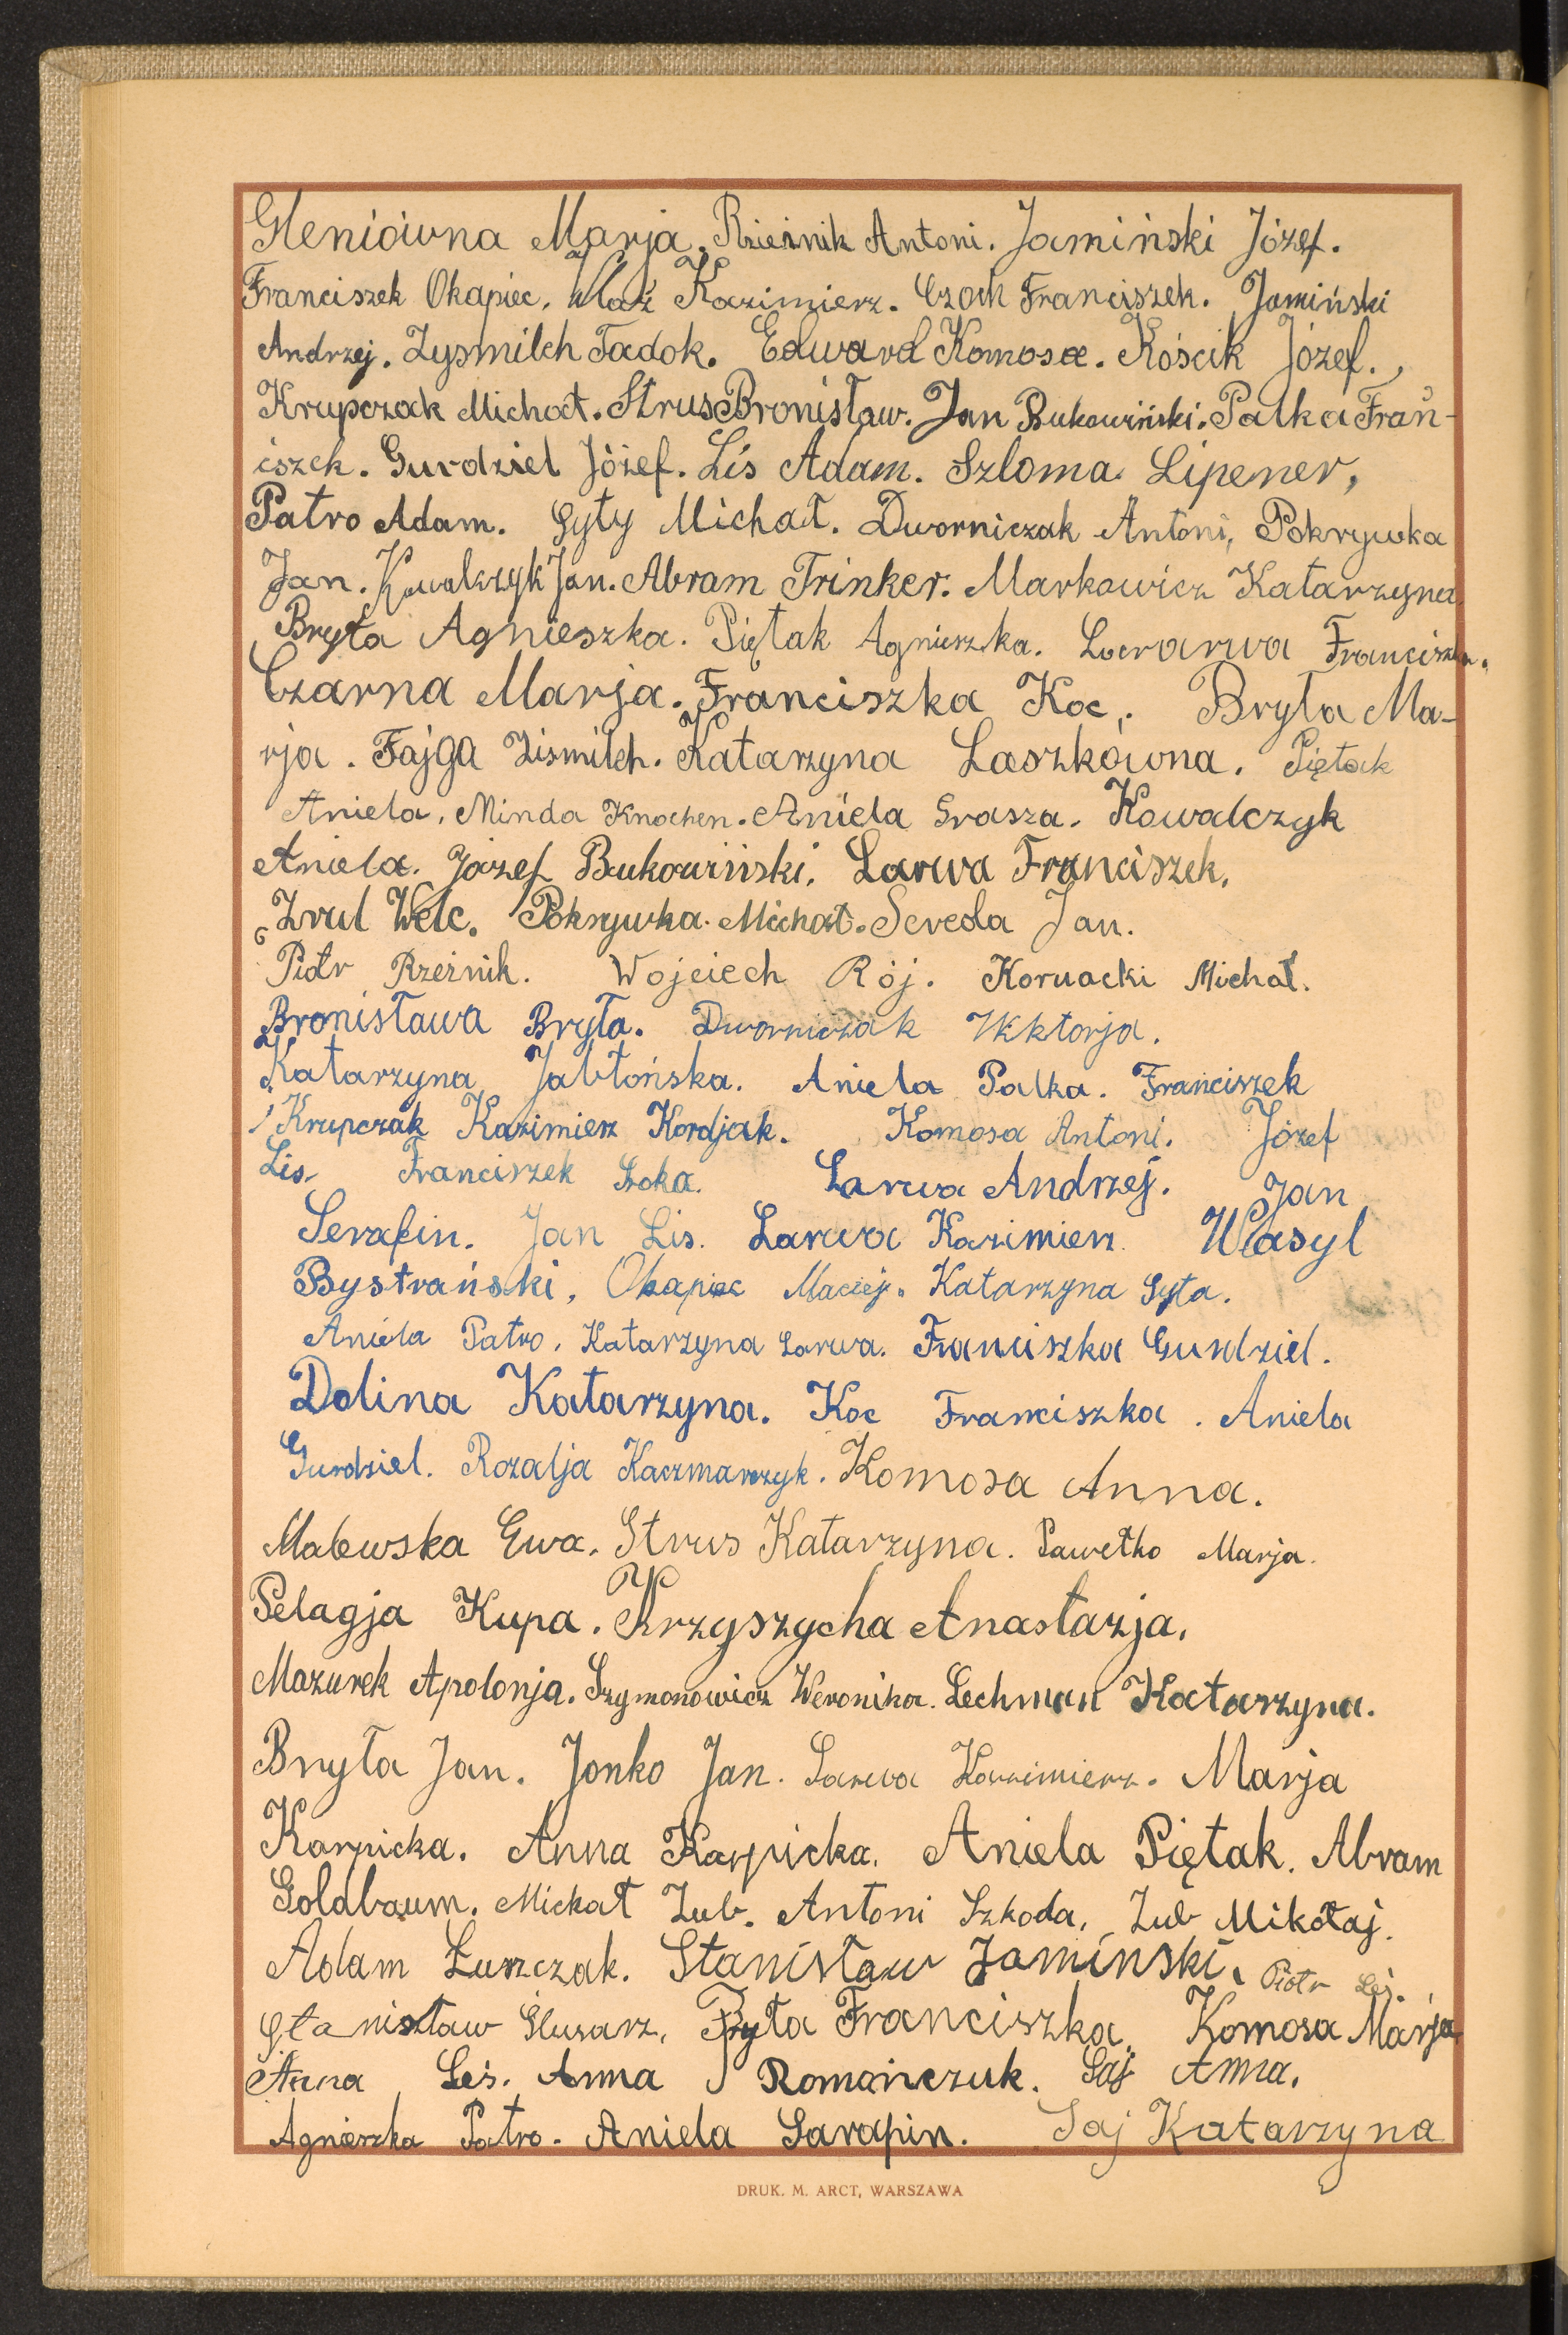 Gleniówna Marja. Rzeźnik Antoni. Jamiński Józef.
Franciszek Okapiec. Kazimierz. Czoch Franciszek. Jamiński
Andrzej. Zysmilch Tadok. Edward Komosa. Kościk Józef.
Krupczak Michał. Strus Bronisław. Jan Bukowiński. Palka Fran-
iszek. Gurdziel Józef. Lis Adam. Szloma Lipener,
Patro Adam. Syty Michał. Dworniczak Antoni, Pokrywka
Jan. Kowalczyk Jan. Abram Trinker. Markowicz Katarzyna.
Bryła Agnieszka. Piętak Agnieszka. Franciszka.
Czarna Marja. Franciszka Koc. Bryła Ma-
rja. Fajga Zismilch. Katarzyna Laszkówna. Piętak
Aniela, Minda Knochen. Aniela Grasza. Kowalczyk
Aniela. Józef Bukowiński. Larwa Franciszek.
Zrul Welc. Pokrywka Michał. Sereda Jan.
Piotr Rzeźnik. Wojciech Rój. Kornacki Michał.
Bronisława Bryła. Dworniczak Wiktorja.
Katarzyna Jabłońska. Aniela Palka. Franciszek
Krupczak Kazimierz Kordjak. Komosa Antoni. Józef
Lis. Franciszek Soka. Larwa Andrzej. Jan
Serafin. Jan Lis. Larwa Kazimierz. Wasyl
Bystrański, Okapiec Maciej. Katarzyna Syta.
Aniela Patro. Katarzyna Larwa. Franciszka Gurdziel.
Dolina Katarzyna. Koc Franciszka. Aniela
Gurdziel. Rozalja Kaczmarczyk. Komosa Anna.
Malewska Ewa. Strus Katarzyna. Pawełko Marja.
Pelagja Kupa. Krzyszycha Anastazja.
Mazurek Apolonja. Szymonowicz Weronika. Lechman Katarzyna.
Bryła Jan. Jonko Jan. Larwa Kazimierz. Marja
Karpicka. Anna Karpicka. Aniela Piętak. Abram
Goldbaum. Michał Zub. Antoni Szkoda, Zub Mikołaj.
Adam Łuszczak. Stanisław Jamiński. Piotr Leś.
Stanisław Ślusarz, Byta Franciszka. Komosa Marja
Anna Leś. Anna Romańczuk. Saj Anna.
Agnieszka Patro. Aniela Sarapin. Saj Katarzyna
DRUK. M. ARCT, WARSZAWA